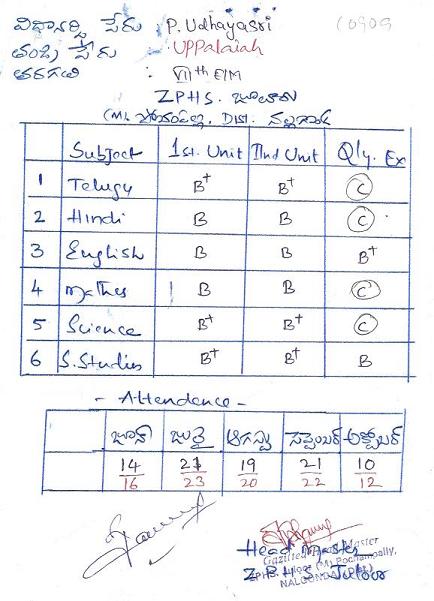 విద్యార్థి పేరు : P. Udhayasri
తండ్రి పేరు : UPPalaiah
తరగతి : VIIth E/M
ZPHS. జూలూరు
(M) పోచంపల్లి, DIST. నల్లగొండ
Subject 1st. Unit IInd Unit Qly. Ex
1 Telugu B+ B+ C
2 Hindi B B C
3 English B B B+
4 Mathes B B C
5 Science B+ B+ C
6 S. Studies B+ B+ B
- Attendence -
జూన్ జులై ఆగస్టు సెప్టెంబర్ అక్టోబర్
14/16 21/23 19/20 21/22 10/12
Head Master
Gazitted Head Master
ZPHS. Juloor (M) Pochampally,
Z P H S Juloor
NALGONDA (Dist)